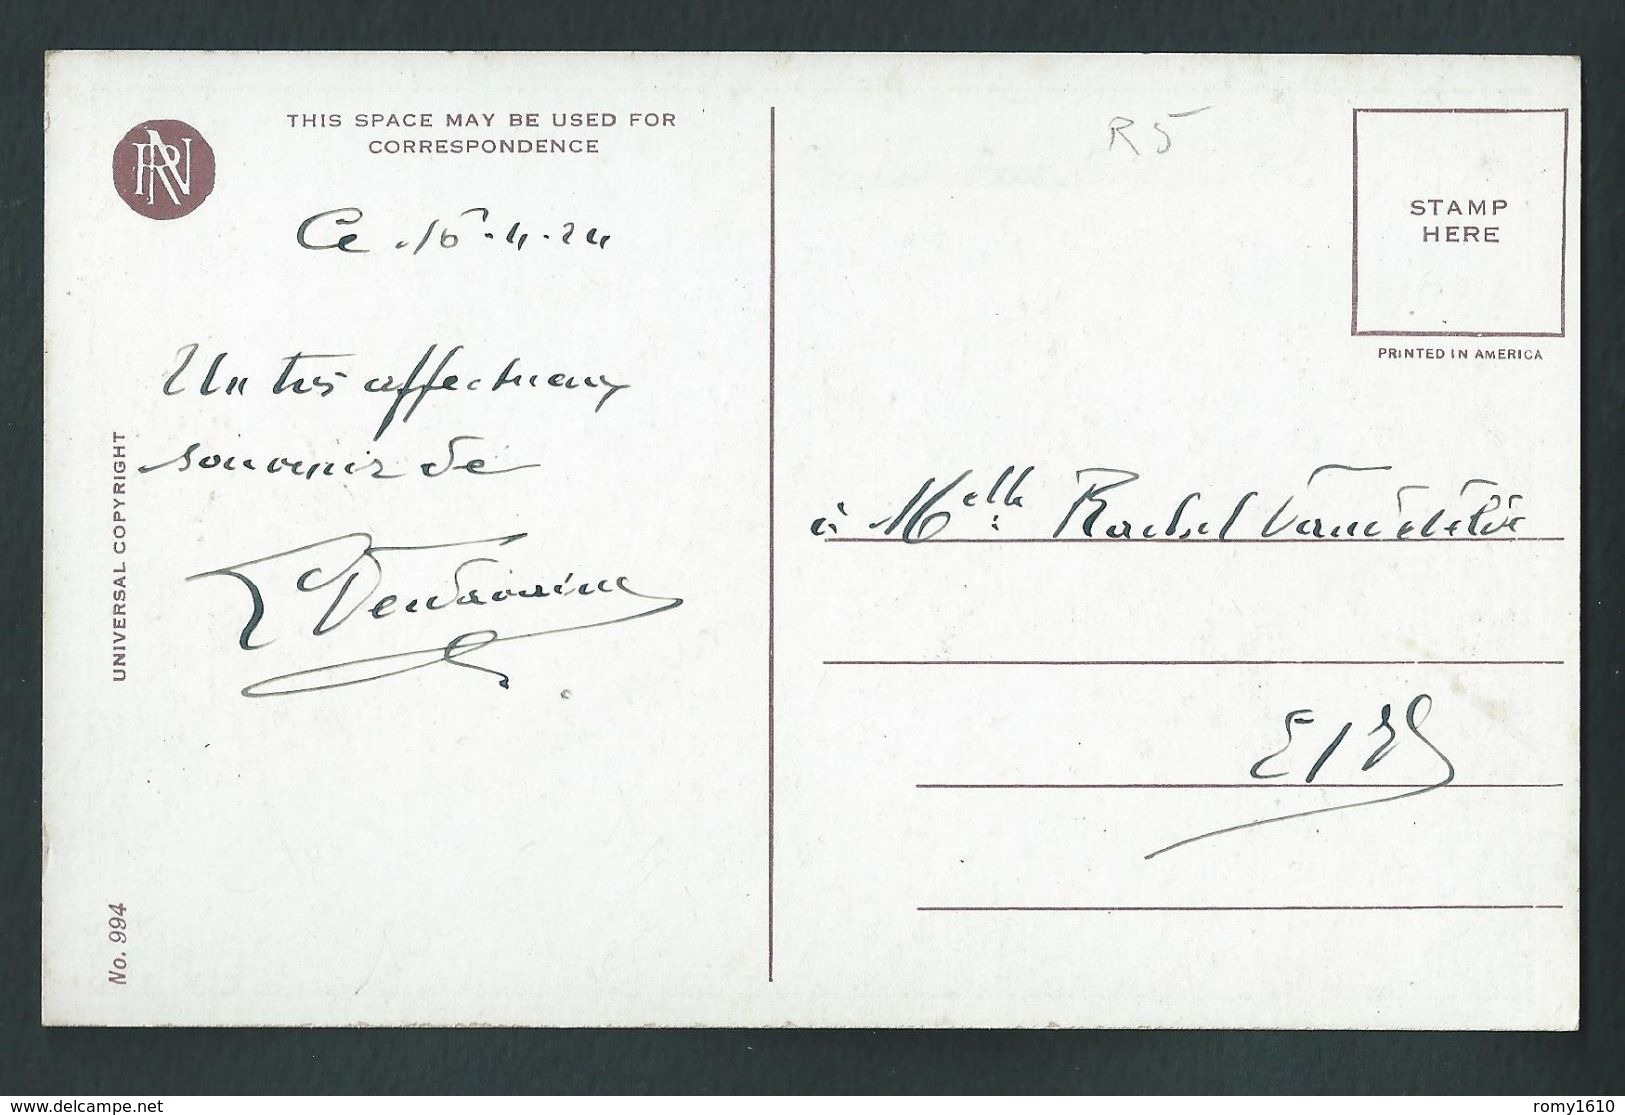 THIS SPACE MAY BE USED FOR
CORRESPONDENCE
Ce 15-4-24
Un très affectueux
souvenir de
UNIVERSAL COPYRIGHT
No. 994
R 5
STAMP
HERE
PRINTED IN AMERICA
à Melle Rachel
E/V
www.delcampe.net
romy1610